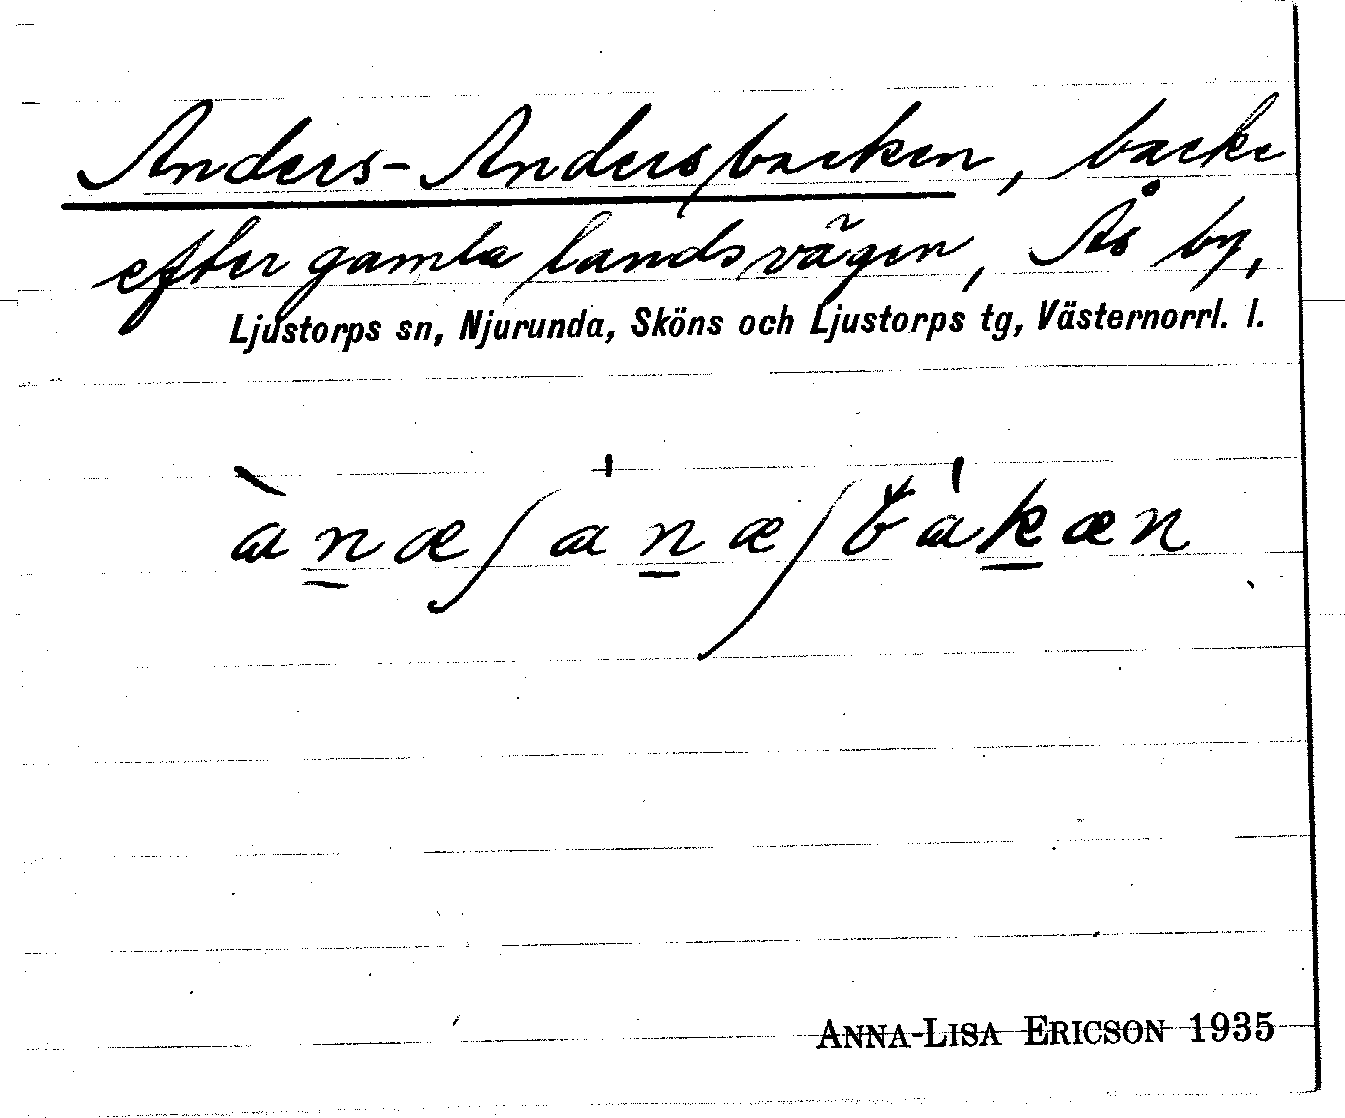 Anders-Andersbacken, backe
efter gamla landsvägen, Ås by,
Ljustorps sn, Njurunda, Sköns och Ljustorps tg, Västernorrl. l.
ànæʃ anæʃbakæn
ANNA-LISA ERICSON 1935